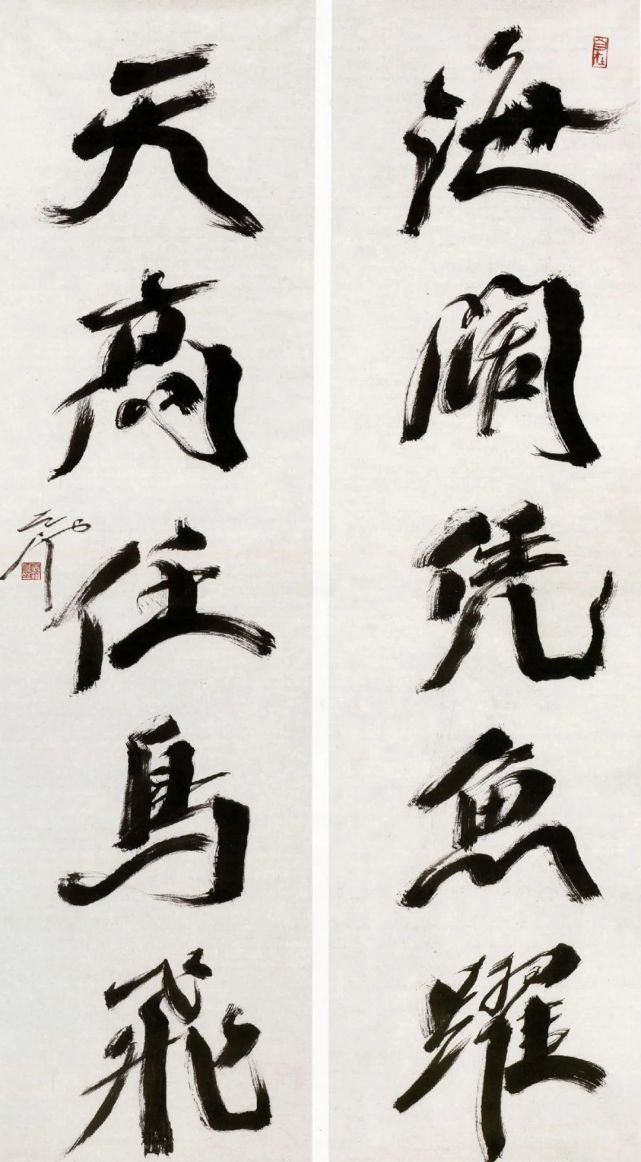 海阔凭魚躍
天高任鳥飛